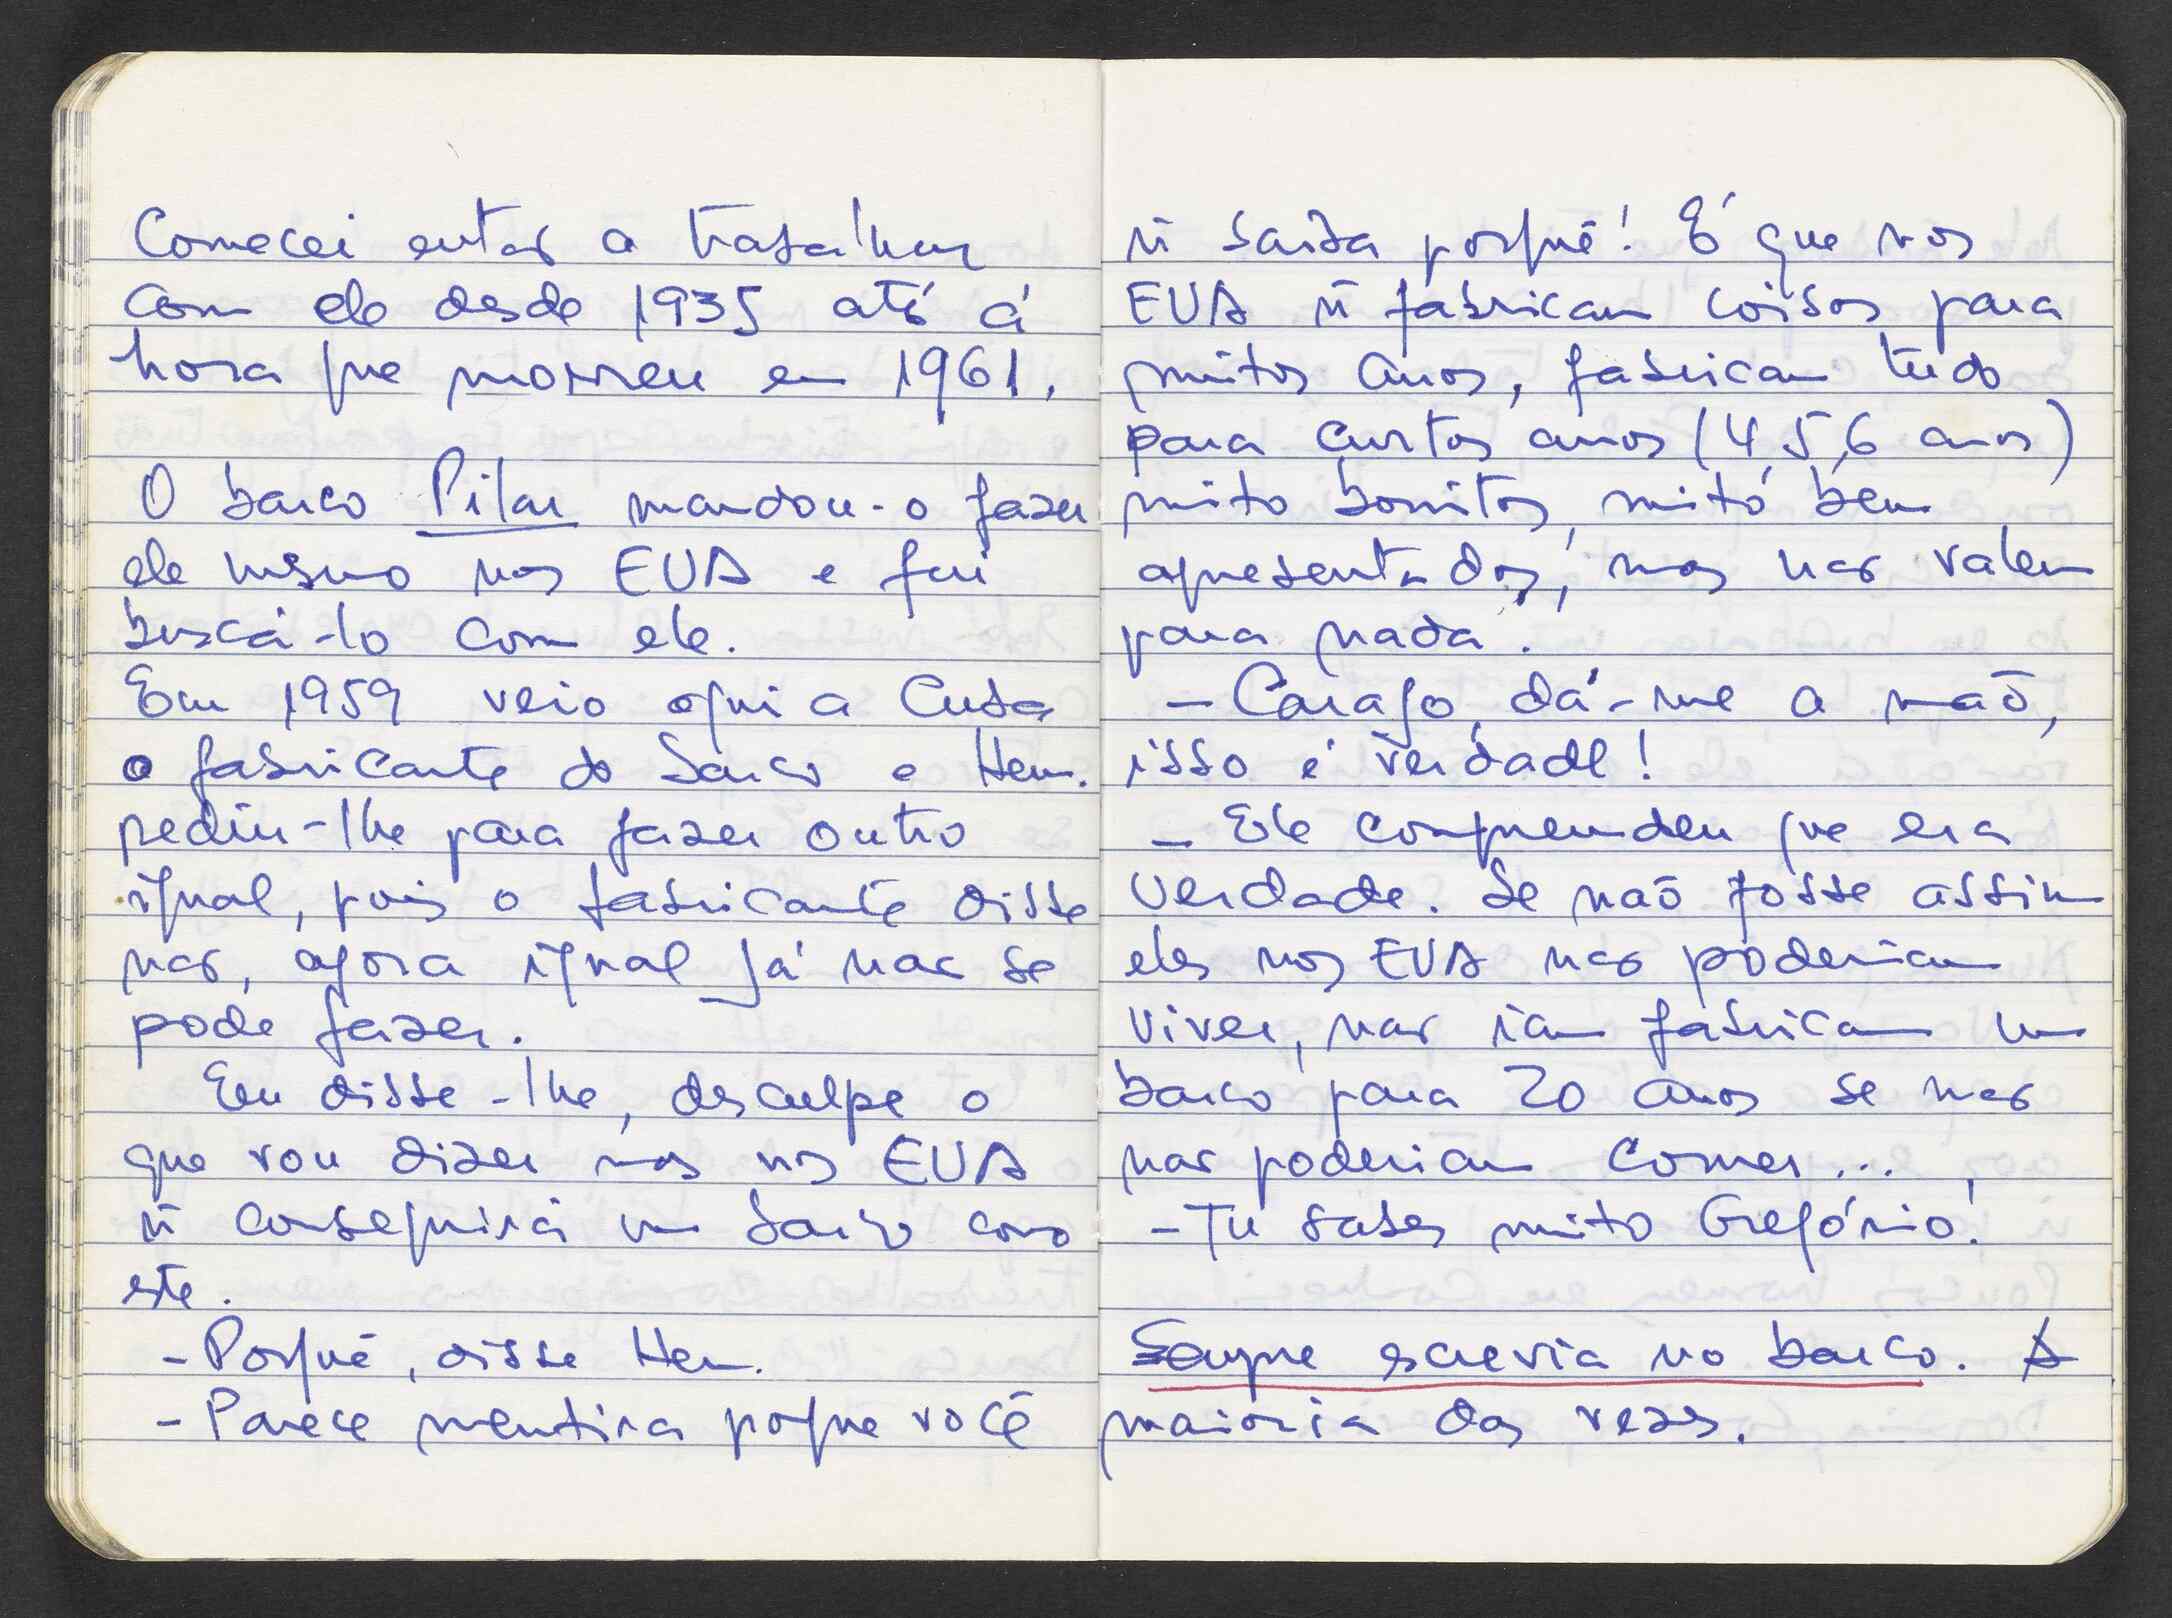 Comecei então a trabalhar
com ele desde 1935 até á
hora que morreu em 1961.
O barco Pilar mandou-o fazer
ele mesmo nos EUA e fui
buscá-lo com ele.
Em 1959 veio aqui a Cuba
o fabricante do barco e Hem.
pediu-lhe para fazer outro
igual, pois o fabricante disse
não, agora igual já não se
pode fazer.
Eu disse-lhe, desculpe o
que vou dizer mas nos EUA
ñ conseguirá um barco como
este.
- Porquê, disse Hem.
- Parece mentira porque você
ñ saiba porquê! É que nos
EUA ñ fabricam coisas para
muitos anos, fabricam tudo
para curtos anos (4, 5, 6 anos)
muito bonitos, muito bem
apresentados, mas não valem
para nada.
- Carago, dá-me a mão,
isso é verdade!
- Ele compreendeu que era
verdade. Se não fosse assim
eles nos EUA não poderiam
viver, não iam fabricam um
barco para 20 anos se não
não poderiam comer...
- Tu sabes muito Gregório!
Sempre escrevia no barco. A
maioria das vezes.